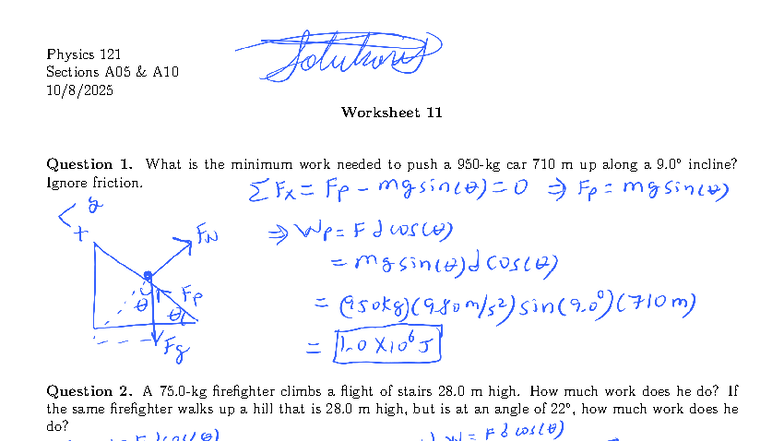 Physics 121
Sections A05 & A10
10/8/2025
Solutions
Worksheet 11
Question 1. What is the minimum work needed to push a 950-kg car 710 m up along a 9.0° incline?
Ignore friction.
ΣFx = Fp - mgsin(θ) = 0 ⇒ Fp = mgsin(θ)
y
+
FN
Fp
θ
θ
Fg
⇒ Wp = Fdcos(θ)
= mgsin(θ)dcos(θ)
= (950kg)(9.80m/s²)sin(9.0°)(710m)
= 1.0 X10⁶ J
Question 2. A 75.0-kg firefighter climbs a flight of stairs 28.0 m high. How much work does he do? If
the same firefighter walks up a hill that is 28.0 m high, but is at an angle of 22°, how much work does he
do?
W = Fdcos(θ)